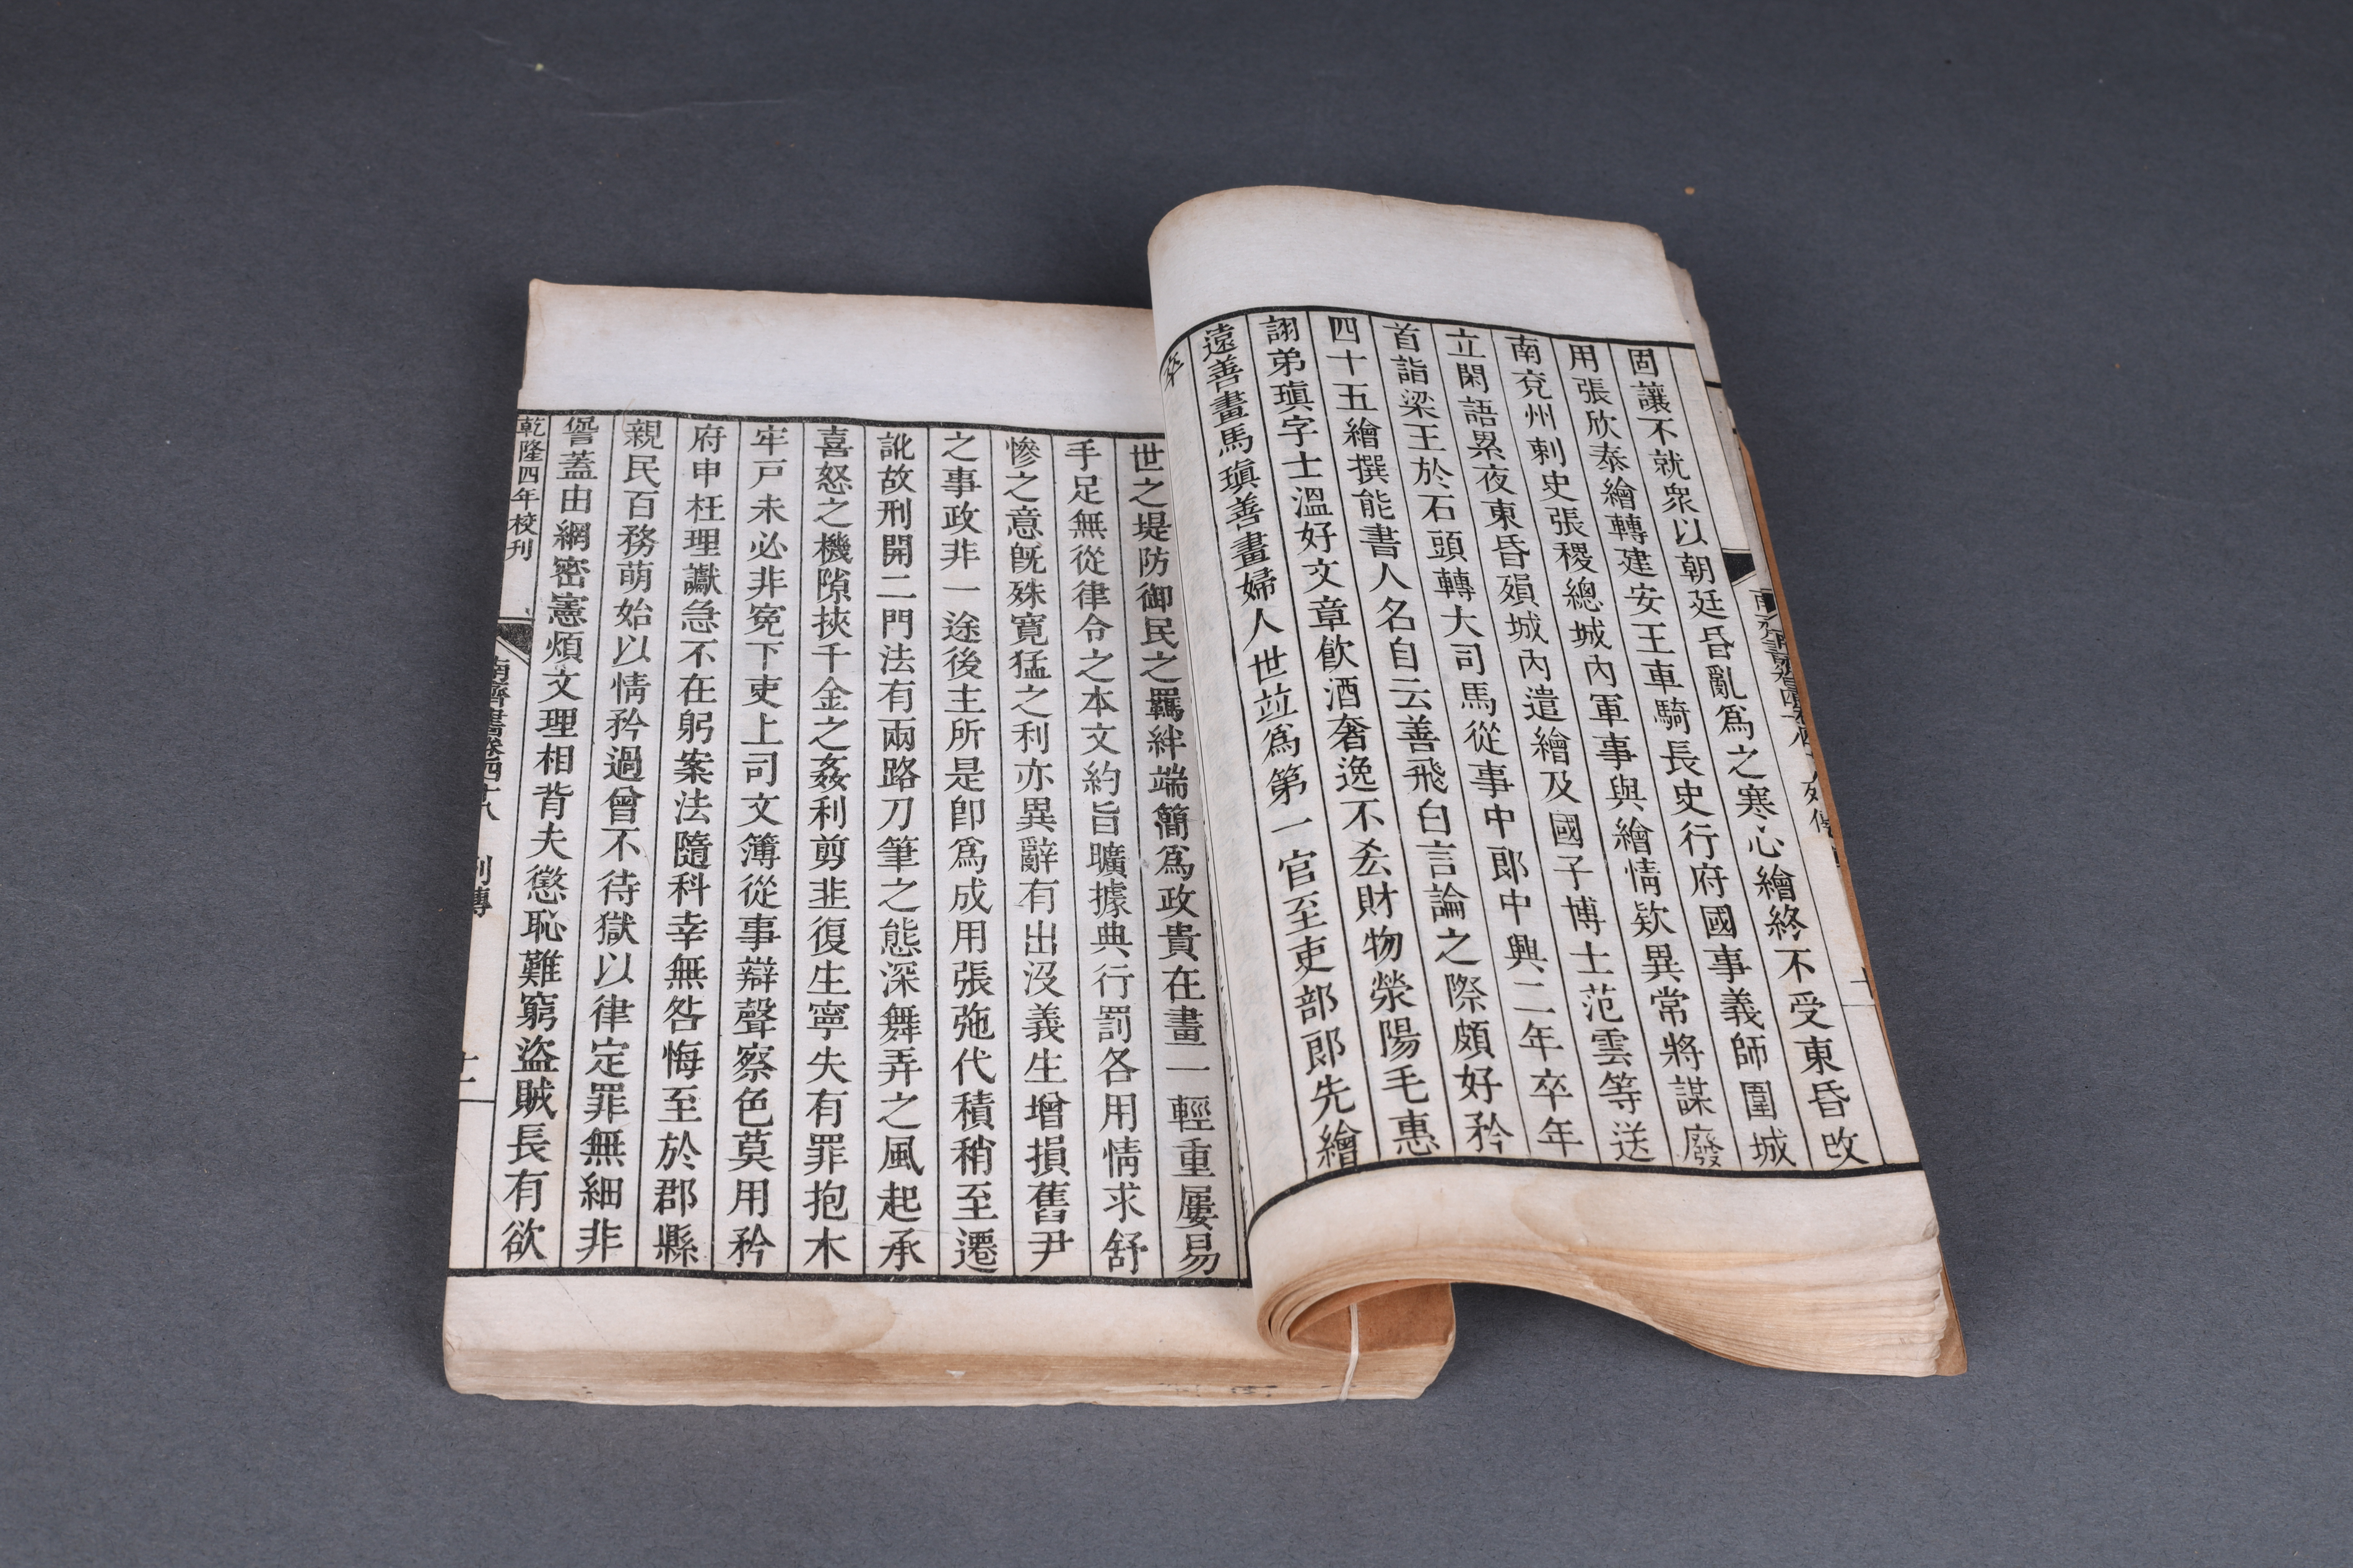 固讓不就衆以朝廷昏亂爲之寒心繪終不受東昏改
用張欣泰繪轉建安王車騎長史行府國事義師圍城
南兗州刺史張稷總城內軍事與繪情欵異常將謀廢
立閑語累夜東昏殞城內遣繪及國子博士范雲等送
首詣梁王於石頭轉大司馬從事中郞中興二年卒年
四十五繪撰能書人名自云善飛白言論之際頗好矜
詡弟瑱字士溫好文章飮酒奢逸不吝財物滎陽毛惠
遠善畫馬瑱善畫婦人世並爲第一官至吏部郞先繪
卒
世之堤防御民之羈絆端簡爲政貴在畫一輕重屢易
手足無從律令之本文約旨曠據典行罰各用情求舒
慘之意旣殊寬猛之利亦異辭有出沒義生增損舊尹
之事政非一途後主所是卽爲成用張弛代積稍至遷
訛故刑開二門法有兩路刀筆之態深舞弄之風起承
喜怒之機隙挾千金之姦利剪韭復生寧失有罪抱木
牢戸未必非冤下吏上司文簿從事辯聲察色莫用矜
府申枉理讞急不在躬案法隨科幸無咎悔至於郡縣
親民百務萌始以情矜過曾不待獄以律定罪無細非
諐蓋由網密憲煩文理相背夫懲恥難窮盜賊長有欲
乾隆四年校刊
南齊書卷四十八 列傳